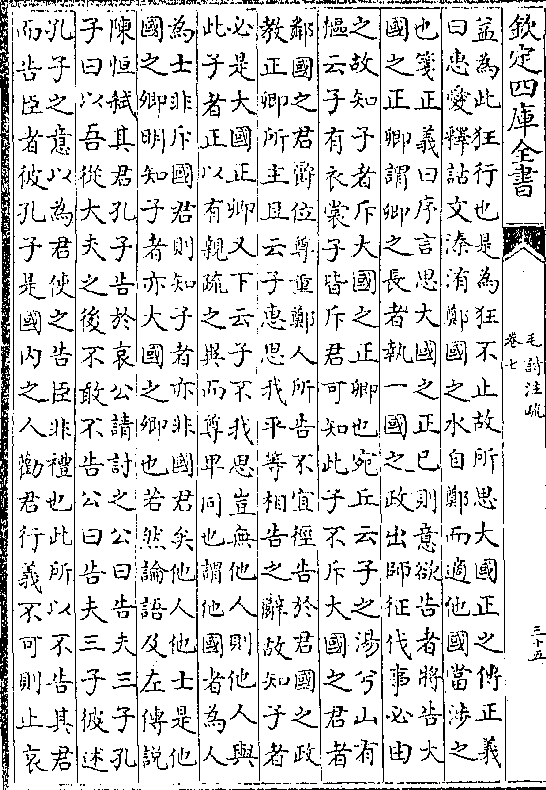 欽定四庫全書
毛詩注疏
卷七
三十五
益為此狂行也是為狂不止故所思大國正之傳正義
曰惠愛釋詁文溱洧鄭國之水自鄭而適他國當涉之
也箋正義曰序言思大國之正已則意欲告者將告大
國之正卿謂卿之長者執一國之政出師征伐事必由
之故知子者斥大國之正卿也宛丘云子之湯兮山有
樞云子有衣裳子皆斥君可知此子不斥大國之君者
鄰國之君爵位尊重鄭人所告不宜徑告於君國之政
教正卿所主且云子惠思我平等相告之辭故知子者
必是大國正卿又下云子不我思豈無他人則他人與
此子者正以有親疏之異而尊卑同也謂他國者為人
為士非斥國君則知子者亦非國君矣他人他士是他
國之卿明知子者亦大國之卿也若然論語及左傳說
陳恒弑其君孔子告於哀公請討之公曰告夫三子孔
子曰以吾從大夫之後不敢不告公曰告夫三子彼述
孔子之意以為君使之告臣非禮也此所以不告其君
而告臣者彼孔子是國內之人勸君行義不可則止哀